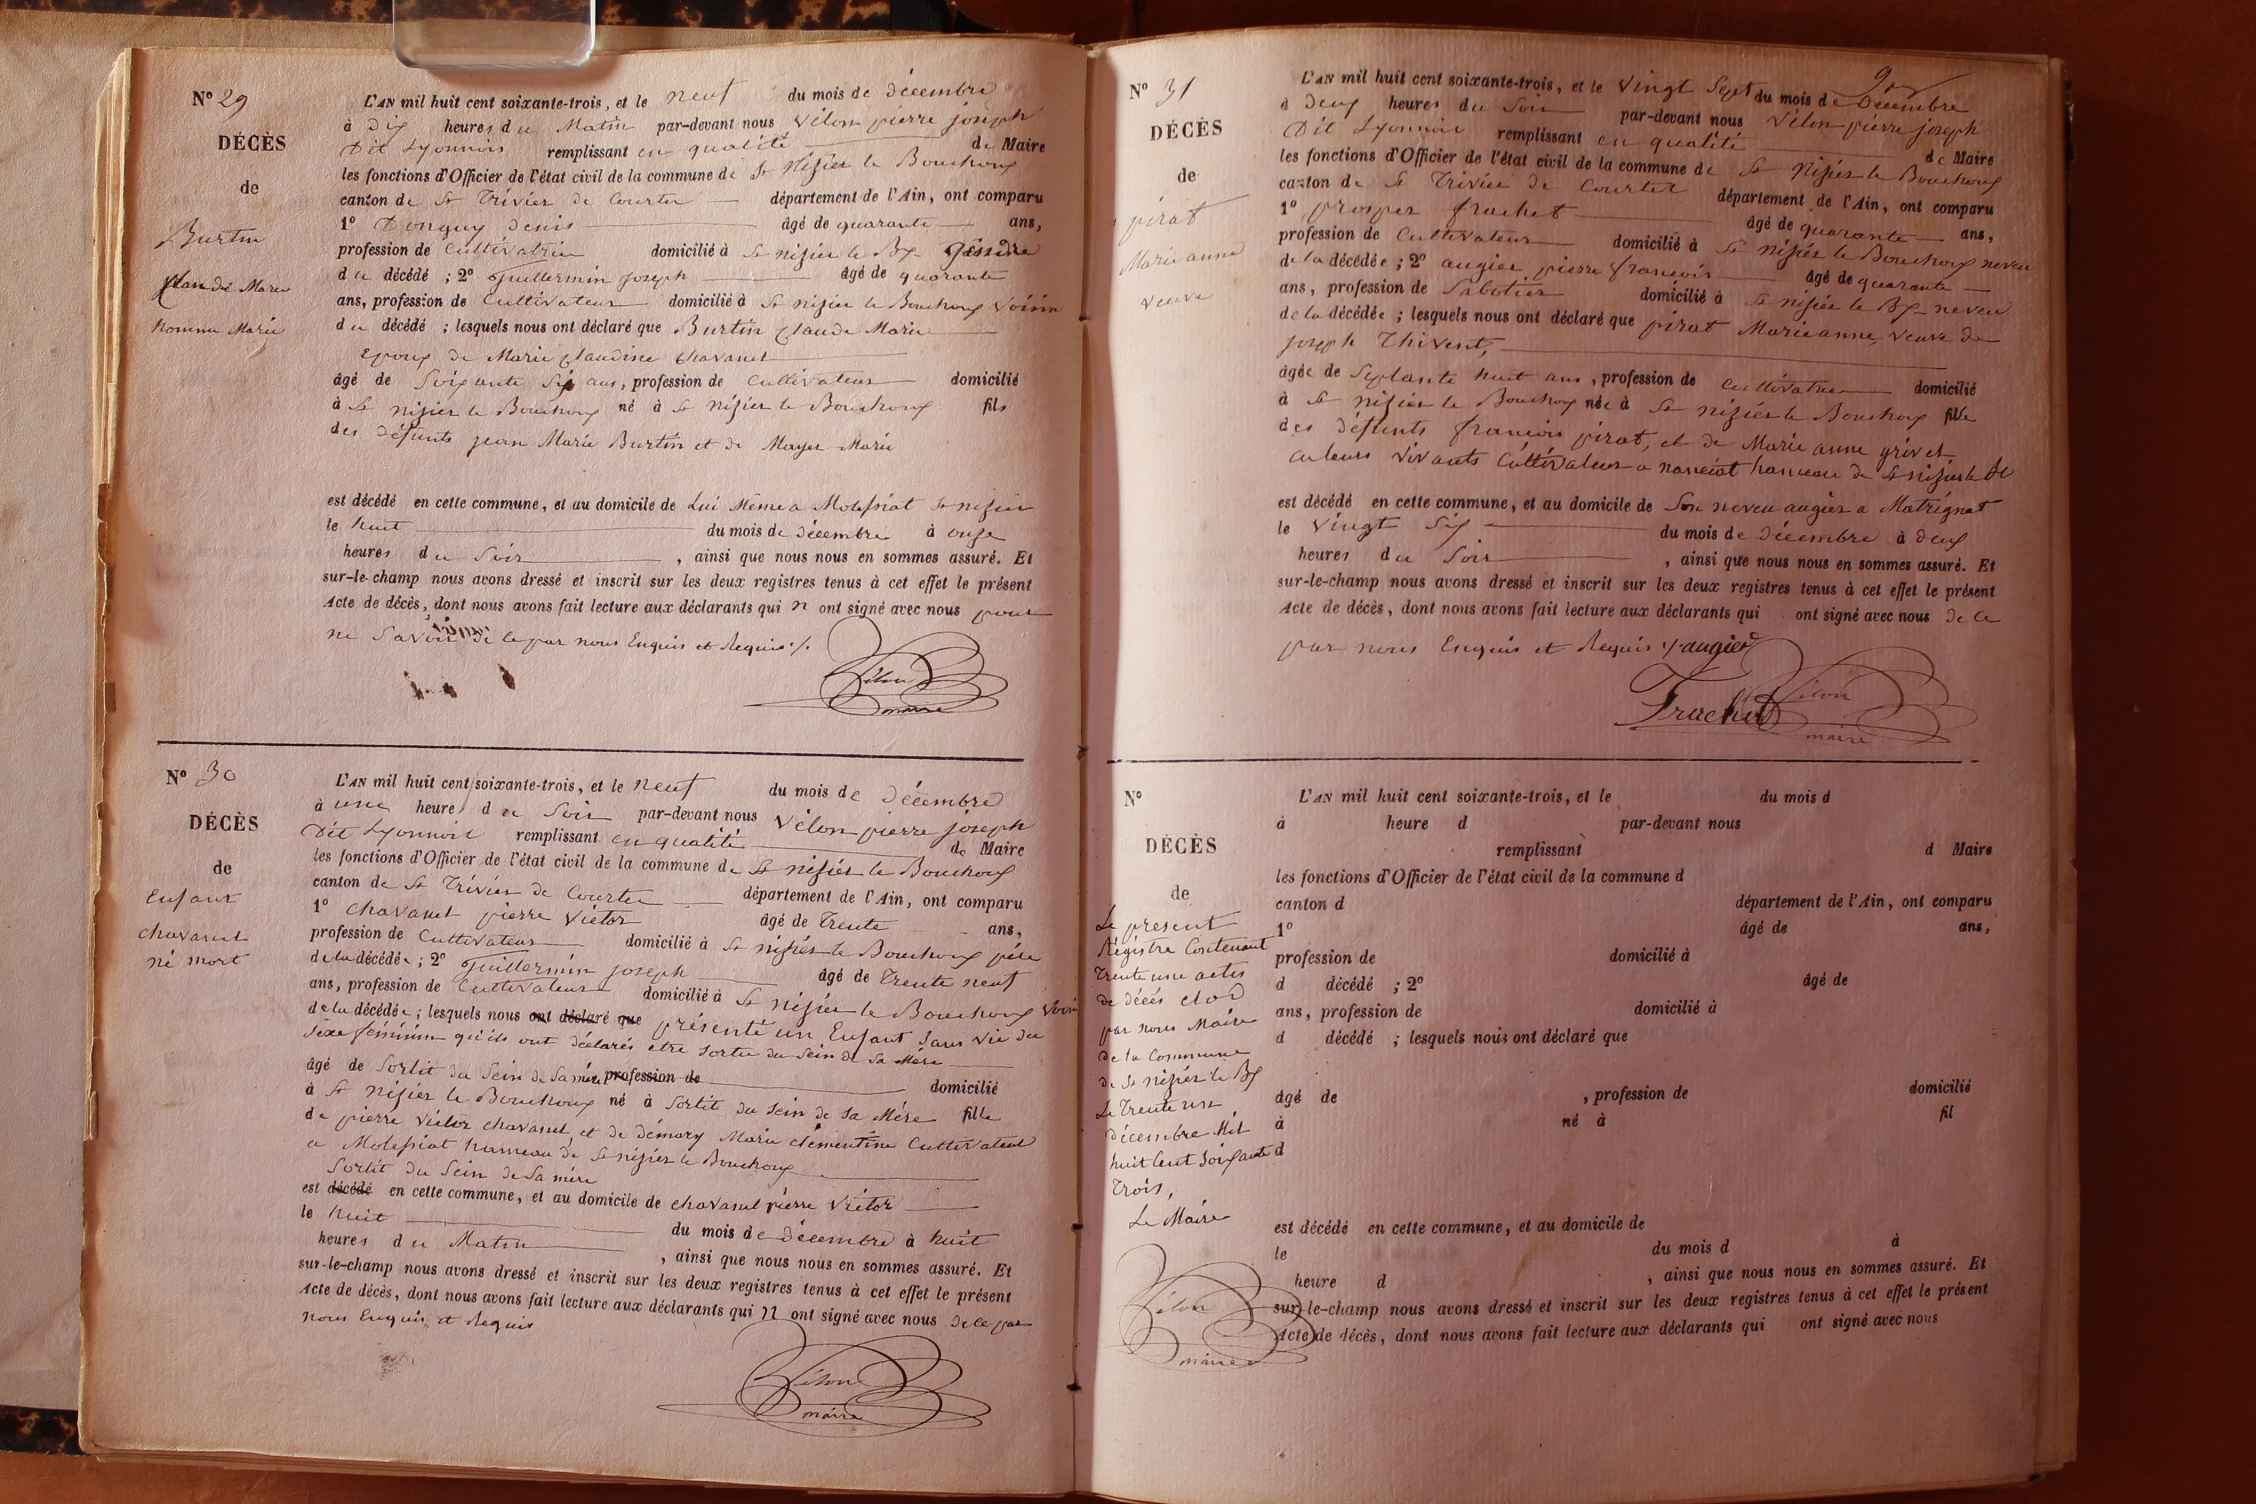 N° 29
DÉCÈS
de
Burtin
Claude Marie
homme Marié
L'AN mil huit cent soixante-trois, et le neuf du mois de décembre
à Dix heures du Matin par-devant nous Vélon pierre joseph
Dit Lyonnois remplissant en qualité de Maire
les fonctions d'Officier de l'état civil de la commune de St Nizier le Bouchoux
canton de St Trivier de Courtes département de l'Ain, ont comparu
1° Donguy Denis âgé de quarante ans,
profession de Cultivateur domicilié à St nizier le Bx Gendre
du décédé ; 2° Guillermin joseph âgé de quarante
ans, profession de Cultivateur domicilié à St nizier le Bouchoux Voisin
du décédé ; lesquels nous ont déclaré que Burtin Claude Marie
Epoux de Marie Claudine Chavanel
âgé de Soixante Six ans, profession de Cultivateur domicilié
à St nizier le Bouchoux né à St nizier le Bouchoux fils
des défunts jean Marie Burtin et de Mayer Marie
est décédé en cette commune, et au domicile de Lui Même a Molessiat St nizier
le huit du mois de décembre à onze
heures du Soir , ainsi que nous nous en sommes assuré. Et
sur-le-champ nous avons dressé et inscrit sur les deux registres tenus à cet effet le présent
Acte de décès, dont nous avons fait lecture aux déclarants qui n ont signé avec nous pour
ne Savoir de ce par nous Enquis et Requis ./.
Vélon
maire
N° 30
DÉCÈS
de
Enfant
chavanel
né mort
L'AN mil huit cent soixante-trois, et le neuf du mois de décembre
à une heure du Soir par-devant nous Vélon pierre joseph
Dit Lyonnois remplissant en qualité de Maire
les fonctions d'Officier de l'état civil de la commune de St nizier le Bouchoux
canton de St Trivier de Courtes département de l'Ain, ont comparu
1° Chavanel pierre Victor âgé de Trente ans,
profession de Cultivateur domicilié à St nizier le Bouchoux père
de la décédée ; 2° Guillermin joseph âgé de Trente neuf
ans, profession de Cultivateur domicilié à St nizier le Bouchoux Voisin
de la décédée ; lesquels nous ont déclaré que présenté un Enfant Sans Vie du
Sexe féminin qu'ils ont déclarés etre Sortie du Sein de Sa Mère
âgé de Sortit du Sein de Sa mère profession de domicilié
à St nizier le Bouchoux né à Sortit du Sein de Sa Mère fille
de pierre Victor chavanel et de démary Marie Clémentine Cultivateur
a Molessiat hameau de St nizier le Bouchoux
Sortit du Sein de Sa mère
est décédé en cette commune, et au domicile de chavanel pierre Victor
le huit du mois de décembre à huit
heures du Matin , ainsi que nous nous en sommes assuré. Et
sur-le-champ nous avons dressé et inscrit sur les deux registres tenus à cet effet le présent
Acte de décès, dont nous avons fait lecture aux déclarants qui n ont signé avec nous de ce par
nous Enquis et Requis
Vélon
maire
N° 31
DÉCÈS
de
pirat
Marie anne
veuve
L'AN mil huit cent soixante-trois, et le Vingt Sept du mois de Décembre
à Deux heures du Soir par-devant nous Vélon pierre joseph
Dit Lyonnois remplissant en qualité de Maire
les fonctions d'Officier de l'état civil de la commune de St Nizier le Bouchoux
canton de St Trivier de Courtes département de l'Ain, ont comparu
1° prosper frachet âgé de quarante ans,
profession de Cultivateur domicilié à St nizier le Bouchoux neveu
de la décédée ; 2° augier pierre françois âgé de quarante
ans, profession de Sabotier domicilié à St nizier le Bx neveu
de la décédée ; lesquels nous ont déclaré que pirat Marie anne, Veuve de
joseph Thivent,
âgée de Septante huit ans, profession de Cultivatrice domicilié
à St nizier le Bouchoux née à St nizier le Bouchoux fille
des défunts françois pirat, et de Marie anne grivet
en leurs vivants Cultivateur a nanciat hameau de St nizier le
est décédé en cette commune, et au domicile de Son neveu augier a Matrignat
le Vingt Six du mois de décembre à deux
heures du Soir , ainsi que nous nous en sommes assuré. Et
sur-le-champ nous avons dressé et inscrit sur les deux registres tenus à cet effet le présent
Acte de décès, dont nous avons fait lecture aux déclarants qui ont signé avec nous de ce
par nous Enquis et Requis ./. augier
Frachet Vélon
maire
N°
DÉCÈS
de
Le présent
Régistre Contenant
Trente une actes
de décés clos
par nous Maire
de la Commune
de St nizier le Bx
Le Trente un
décembre Mil
huit Cent Soixante
Trois,
Le Maire
Vélon
maire
L'AN mil huit cent soixante-trois, et le du mois d
à heure d par-devant nous
remplissant d Maire
les fonctions d'Officier de l'état civil de la commune d
canton d département de l'Ain, ont comparu
1° âgé de ans,
profession de domicilié à
d décédé ; 2° âgé de
ans, profession de domicilié à
d décédé ; lesquels nous ont déclaré que
âgé de , profession de domicilié
à né à fil
d
est décédé en cette commune, et au domicile de
le du mois d à
heure d , ainsi que nous nous en sommes assuré. Et
sur-le-champ nous avons dressé et inscrit sur les deux registres tenus à cet effet le présent
Acte de décès, dont nous avons fait lecture aux déclarants qui ont signé avec nous